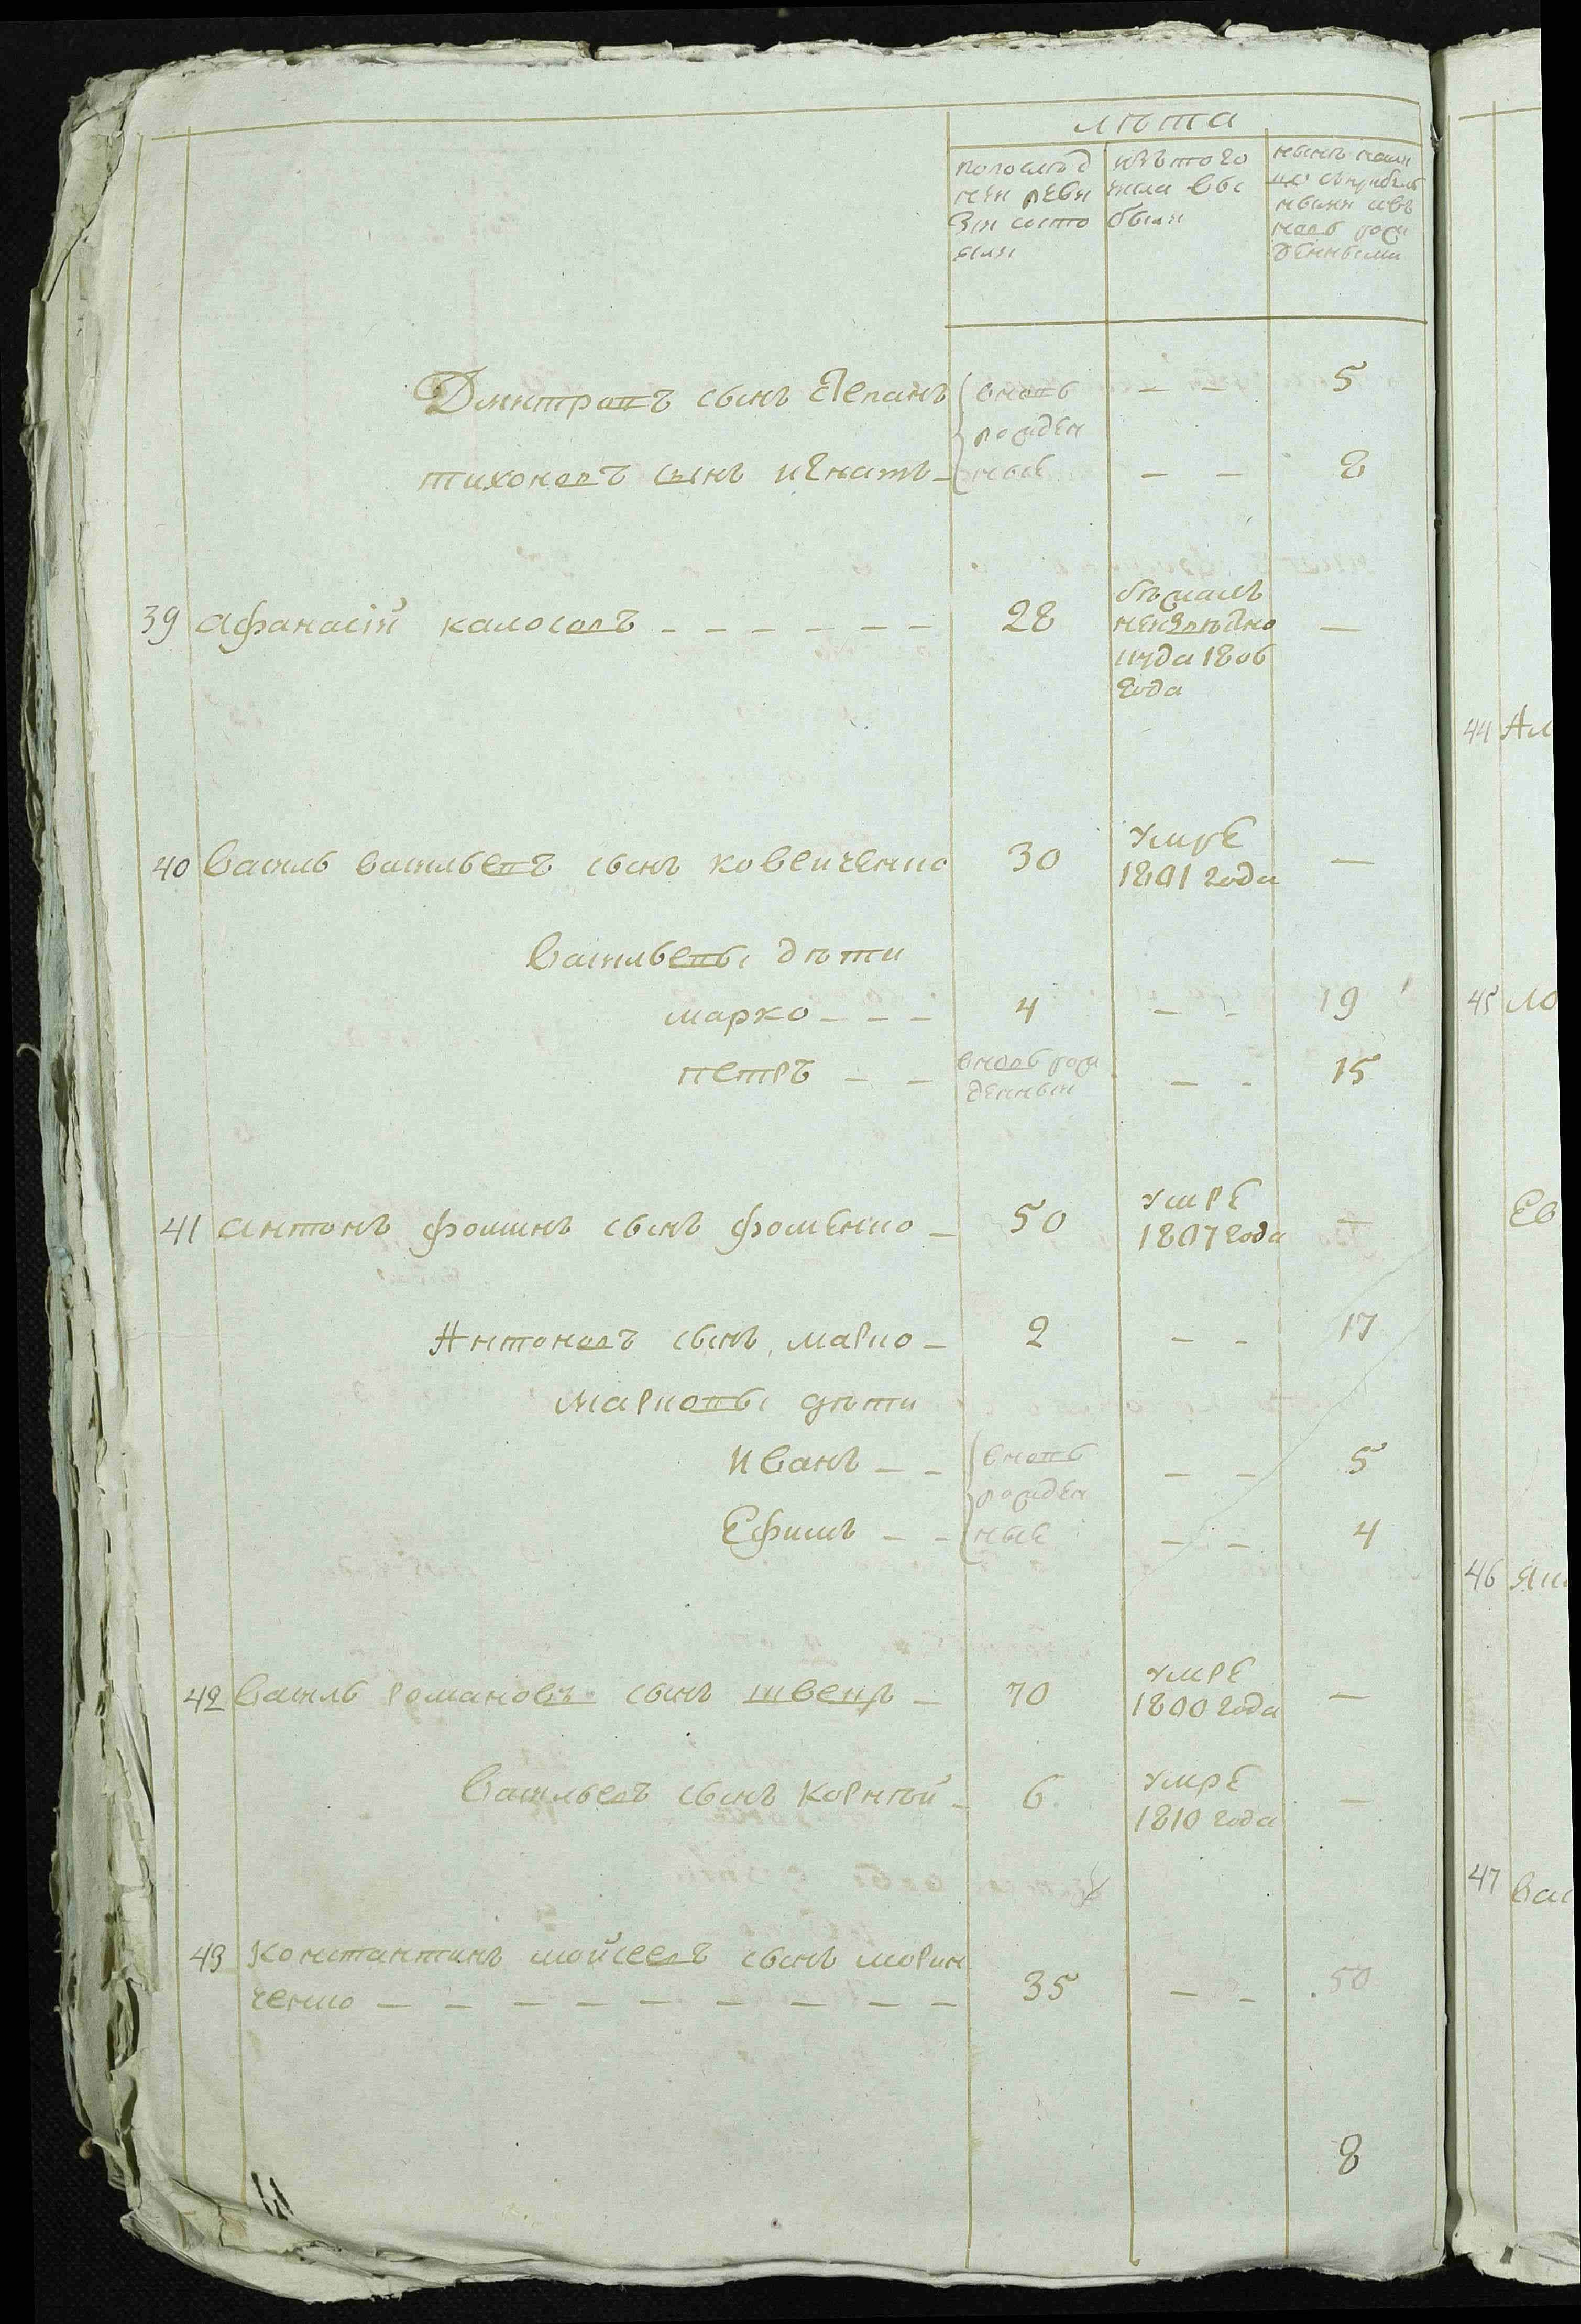 лѣта
попослѣд
ней реви
зіи состо
яли
изъ того
числа вы
были
нынѣ нали
цо съприбыл
ными ивъ
новь рож
денными
Дмитровъ сынъ Степанъ вновь – – 5
рожден
тихоновъ сынъ игнатъ – ные – – 8
39 афанасій калосовъ – – – – – 28 бѣжалъ
неизвѣсно
куда 1806
года –
40 василь васильевъ сынъ ковенченко 30 умре
1801 года –
васильевы дѣти
марко – – – 4 – – 19
петръ – – вновь рож
денныи – – 15
41 антонъ фоминъ сынъ фоменко – 50 умре
1807 года –
Антоновъ сынъ марко – 2 – – 17
марковы дѣти
иванъ – – вновь – – 5
рожден
Ефимъ – – ные – – 4
42 василь романовъ сынъ швецъ – 70 умре
1800 года –
васильевъ сынъ корнѣй – 6 умре
1810 года –
43 константинъ мойсеевъ сынъ морин
ченко – – – – – – – – – – 35 – – 50
8
44 Ал
45 ло
Ев
46 яки
47 вас